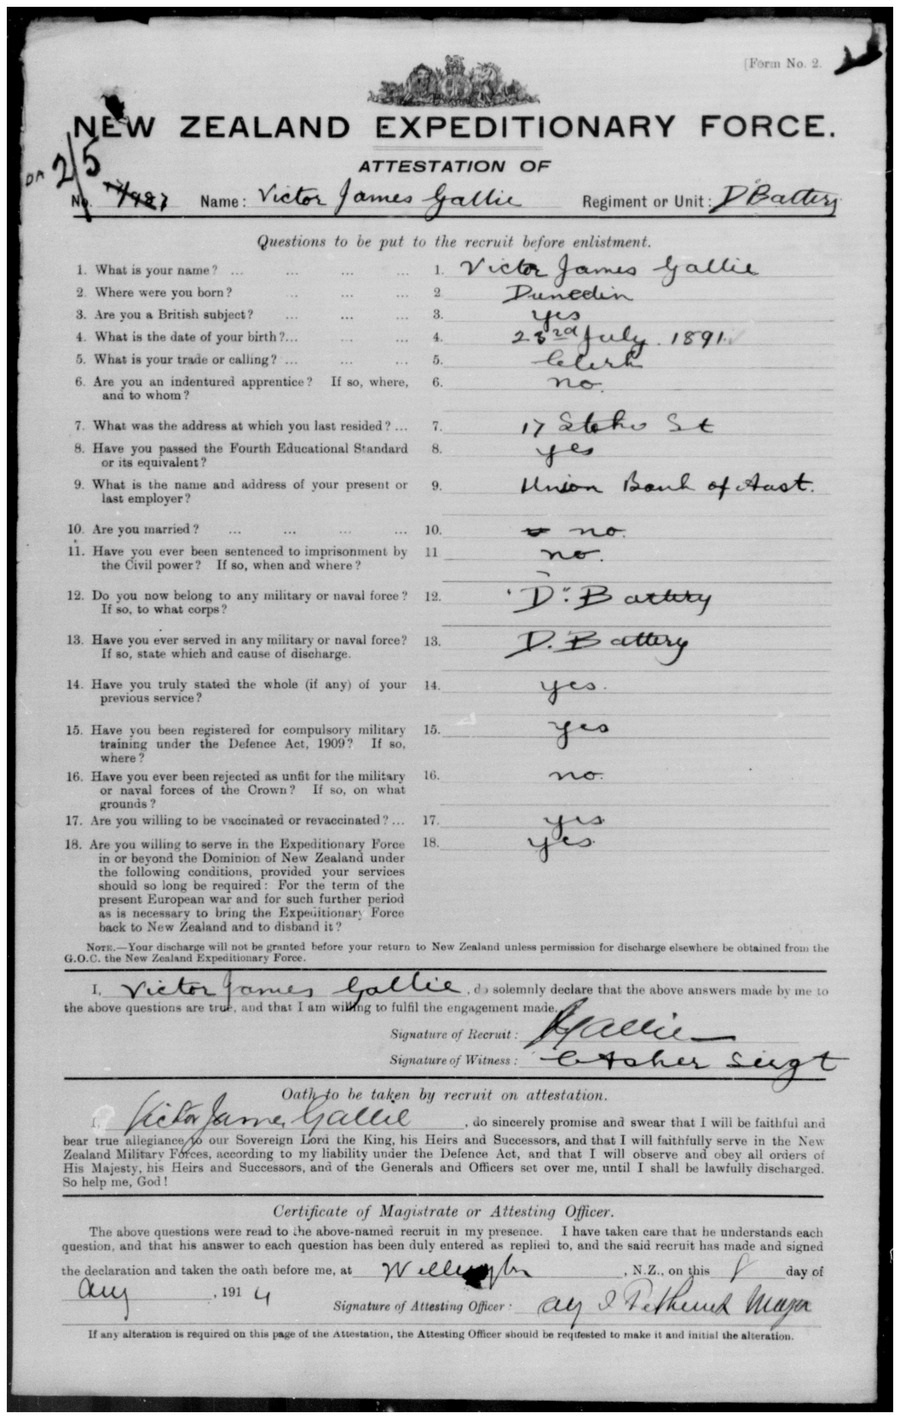 (Form No. 2.
NEW ZEALAND EXPEDITIONARY FORCE.
ATTESTATION OF
2/5
No. Name: Victor James Gallie Regiment or Unit: D Battery
Questions to be put to the recruit before enlistment.
1. What is your name? ... ... ... ... 1. Victor James Gallie
2. Where were you born? ... ... ... 2. Dunedin
3. Are you a British subject? ... ... ... 3. yes
4. What is the date of your birth?... ... ... 4. 23rd July. 1891.
5. What is your trade or calling? ... ... ... 5. Clerk
6. Are you an indentured apprentice? If so, where, 6. no.
and to whom?
7. What was the address at which you last resided? ... 7. 17 St
8. Have you passed the Fourth Educational Standard 8. yes
or its equivalent?
9. What is the name and address of your present or 9. Union Bank of Aust.
last employer?
10. Are you married? ... ... ... ... 10. no.
11. Have you ever been sentenced to imprisonment by 11. no.
the Civil power? If so, when and where?
12. Do you now belong to any military or naval force? 12. "D" Battery
If so, to what corps?
13. Have you ever served in any military or naval force? 13. D. Battery
If so, state which and cause of discharge.
14. Have you truly stated the whole (if any) of your 14. yes.
previous service?
15. Have you been registered for compulsory military 15. yes
training under the Defence Act, 1909? If so,
where?
16. Have you ever been rejected as unfit for the military 16. no.
or naval forces of the Crown? If so, on what
grounds?
17. Are you willing to be vaccinated or revaccinated? ... 17. yes
18. Are you willing to serve in the Expeditionary Force 18. yes
in or beyond the Dominion of New Zealand under
the following conditions, provided your services
should so long be required: For the term of the
present European war and for such further period
as is necessary to bring the Expeditionary Force
back to New Zealand and to disband it?
NOTE.—Your discharge will not be granted before your return to New Zealand unless permission for discharge elsewhere be obtained from the
G.O.C. the New Zealand Expeditionary Force.
I, Victor James Gallie, do solemnly declare that the above answers made by me to
the above questions are true, and that I am willing to fulfil the engagement made.
Signature of Recruit: Gallie
Signature of Witness: C Asher Sergt
Oath to be taken by recruit on attestation.
I, Victor James Gallie, do sincerely promise and swear that I will be faithful and
bear true allegiance to our Sovereign Lord the King, his Heirs and Successors, and that I will faithfully serve in the New
Zealand Military Forces, according to my liability under the Defence Act, and that I will observe and obey all orders of
His Majesty, his Heirs and Successors, and of the Generals and Officers set over me, until I shall be lawfully discharged.
So help me, God!
Certificate of Magistrate or Attesting Officer.
The above questions were read to the above-named recruit in my presence. I have taken care that he understands each
question, and that his answer to each question has been duly entered as replied to, and the said recruit has made and signed
the declaration and taken the oath before me, at Wellington, N.Z., on this 8 day of
Aug, 1914
Signature of Attesting Officer: Major
If any alteration is required on this page of the Attestation, the Attesting Officer should be requested to make it and initial the alteration.